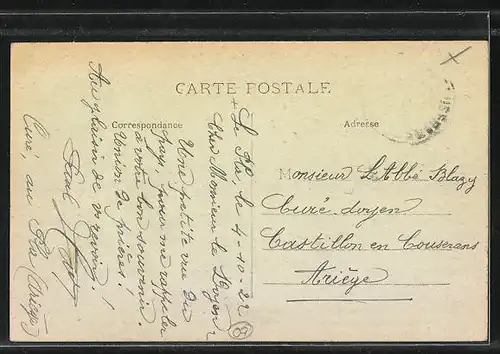 CARTE POSTALE
Correspondance
Adresse
+ Le Pla, le 4-10-22
Cher Monsieur le Doyen
Une petite vue du
pays, pour me rappeler
à votre bon souvenir.
Union de prières!
Au plaisir de vs revoir!
Paul
Curé, au Pla (Ariège)
Monsieur L'Abbé Blazy
Curé-doyen
Castillon en Couserans
Ariège